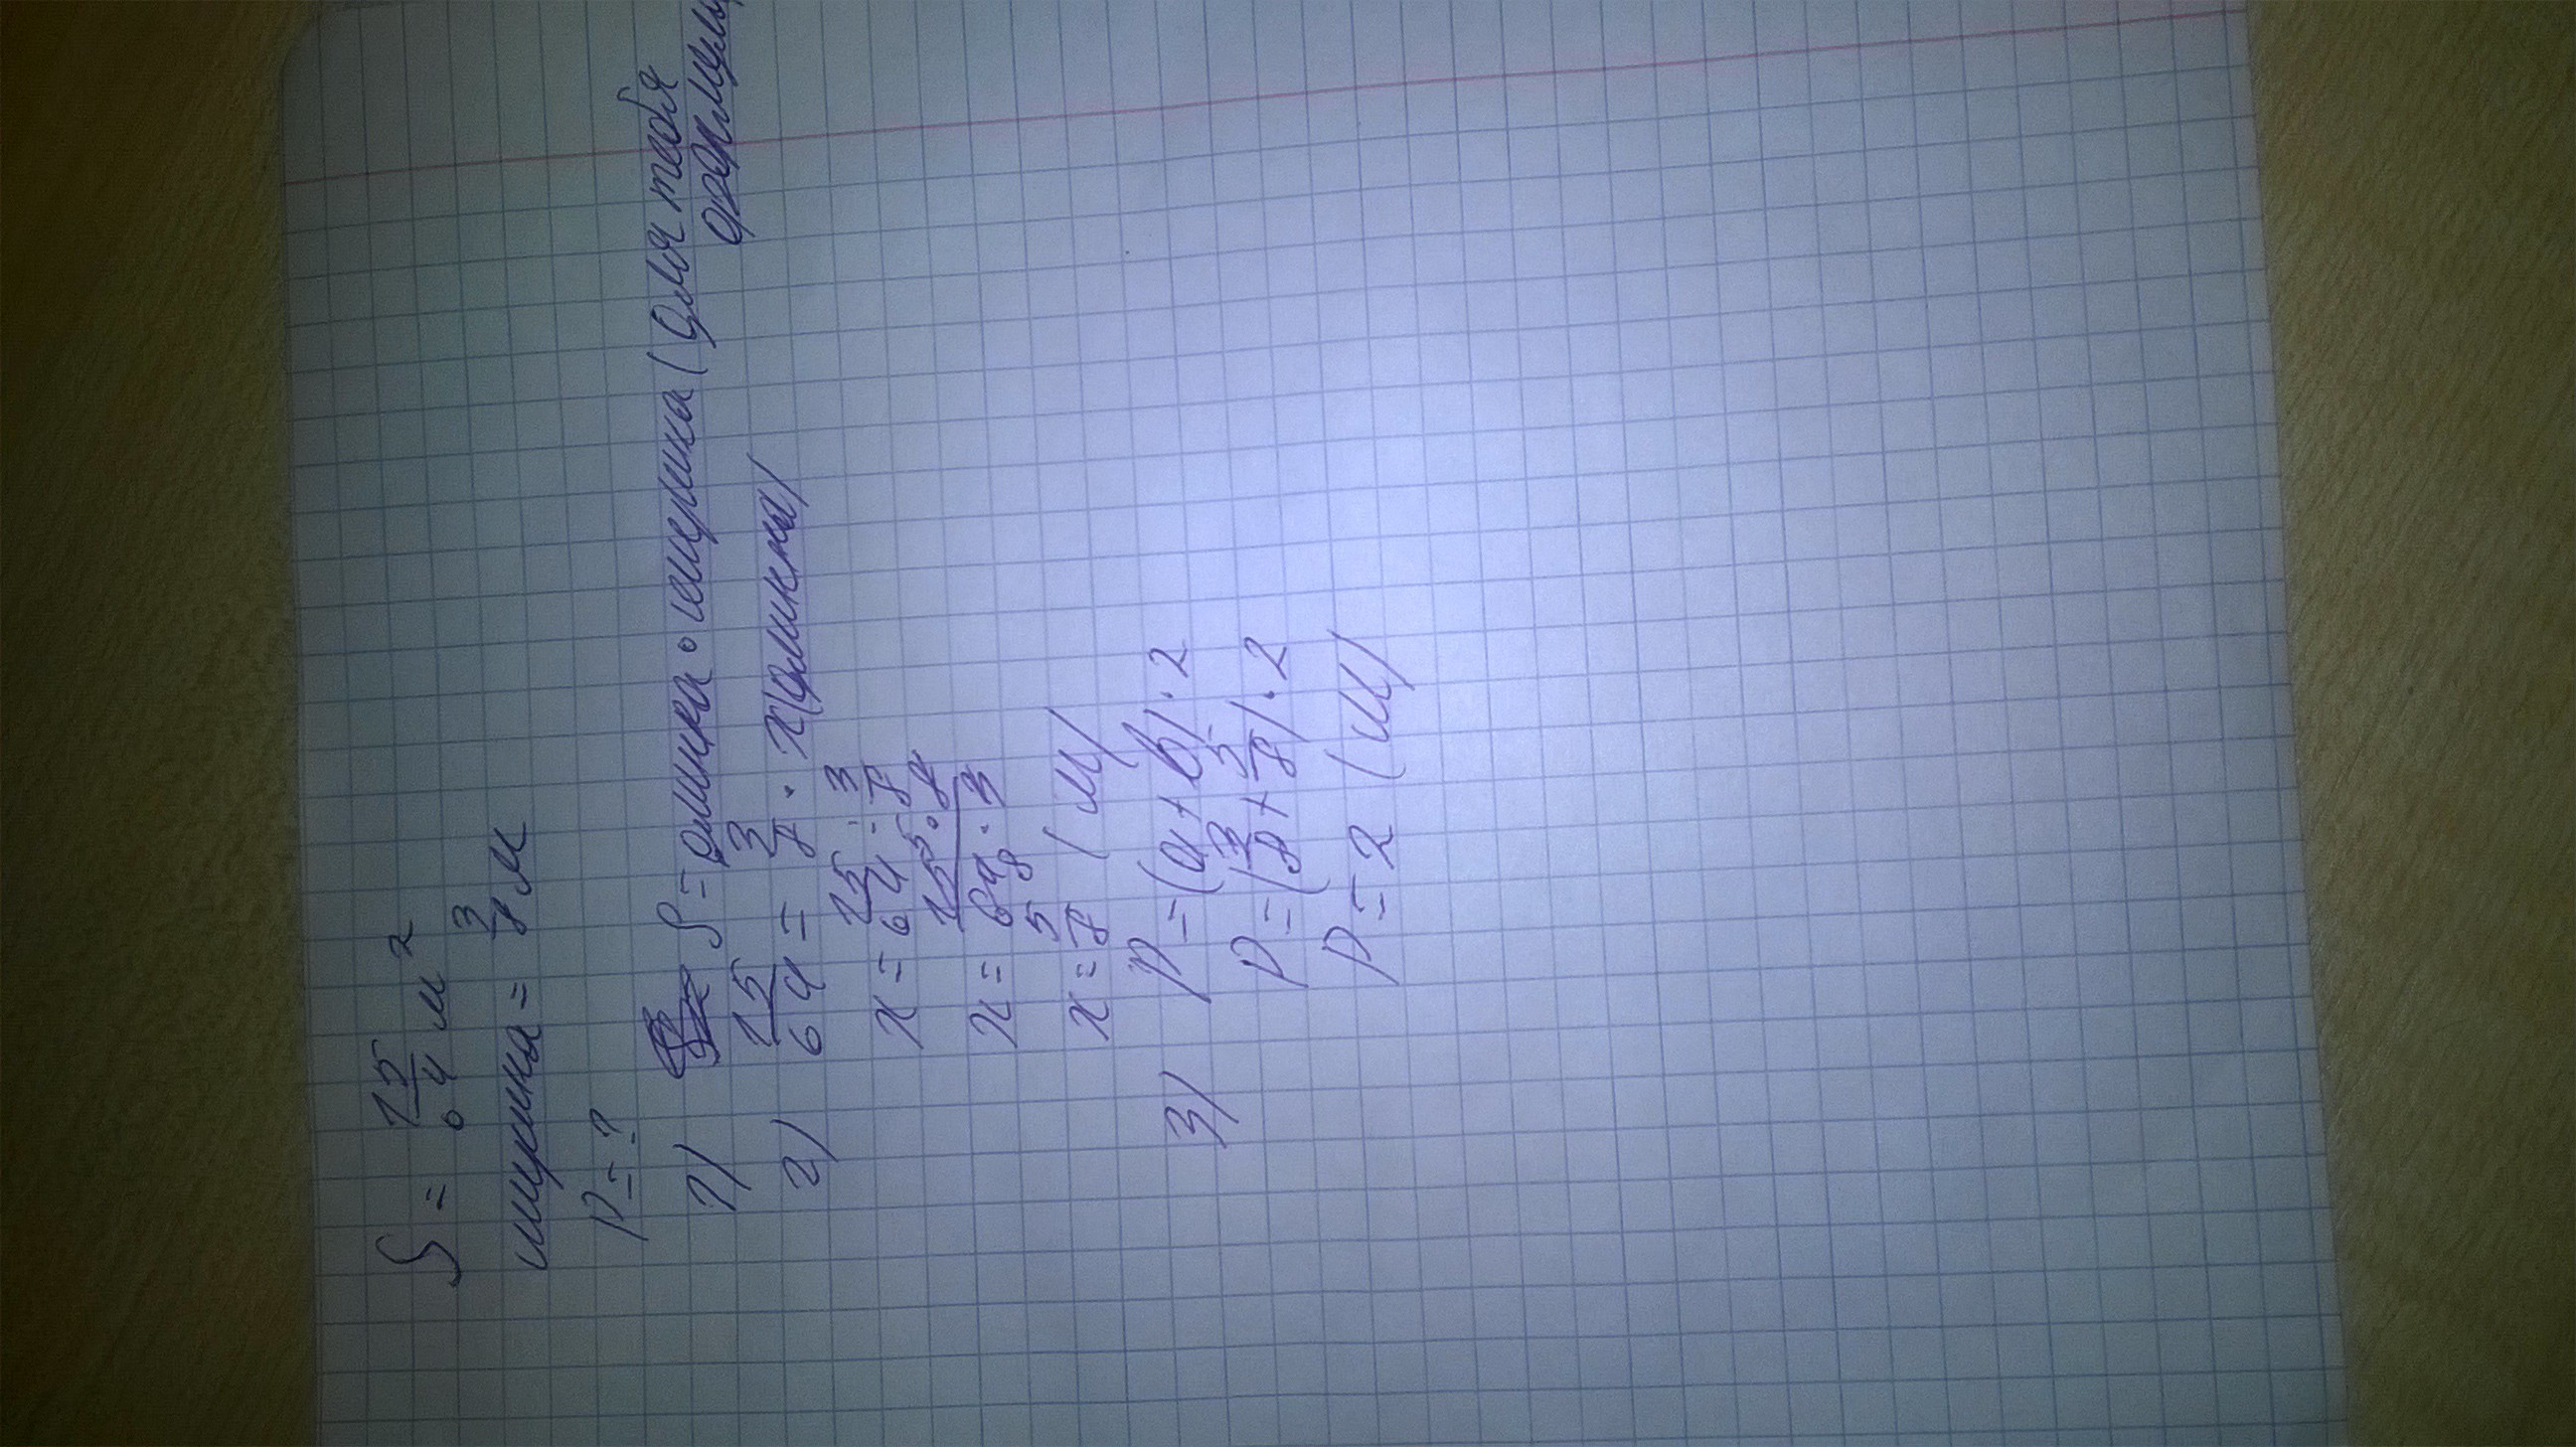 S = 15/64 м²
ширина = 3/8 м
P = ?
1) S = длина · ширина (для тебя
2) 15/64 = 3/8 · x (длина)
x = 15/64 : 3/8
x = 15 · 8 / 64 · 3
x = 5/8 (м)
3) P = (a + b) · 2
P = (3/8 + 5/8) · 2
P = 2 (м)